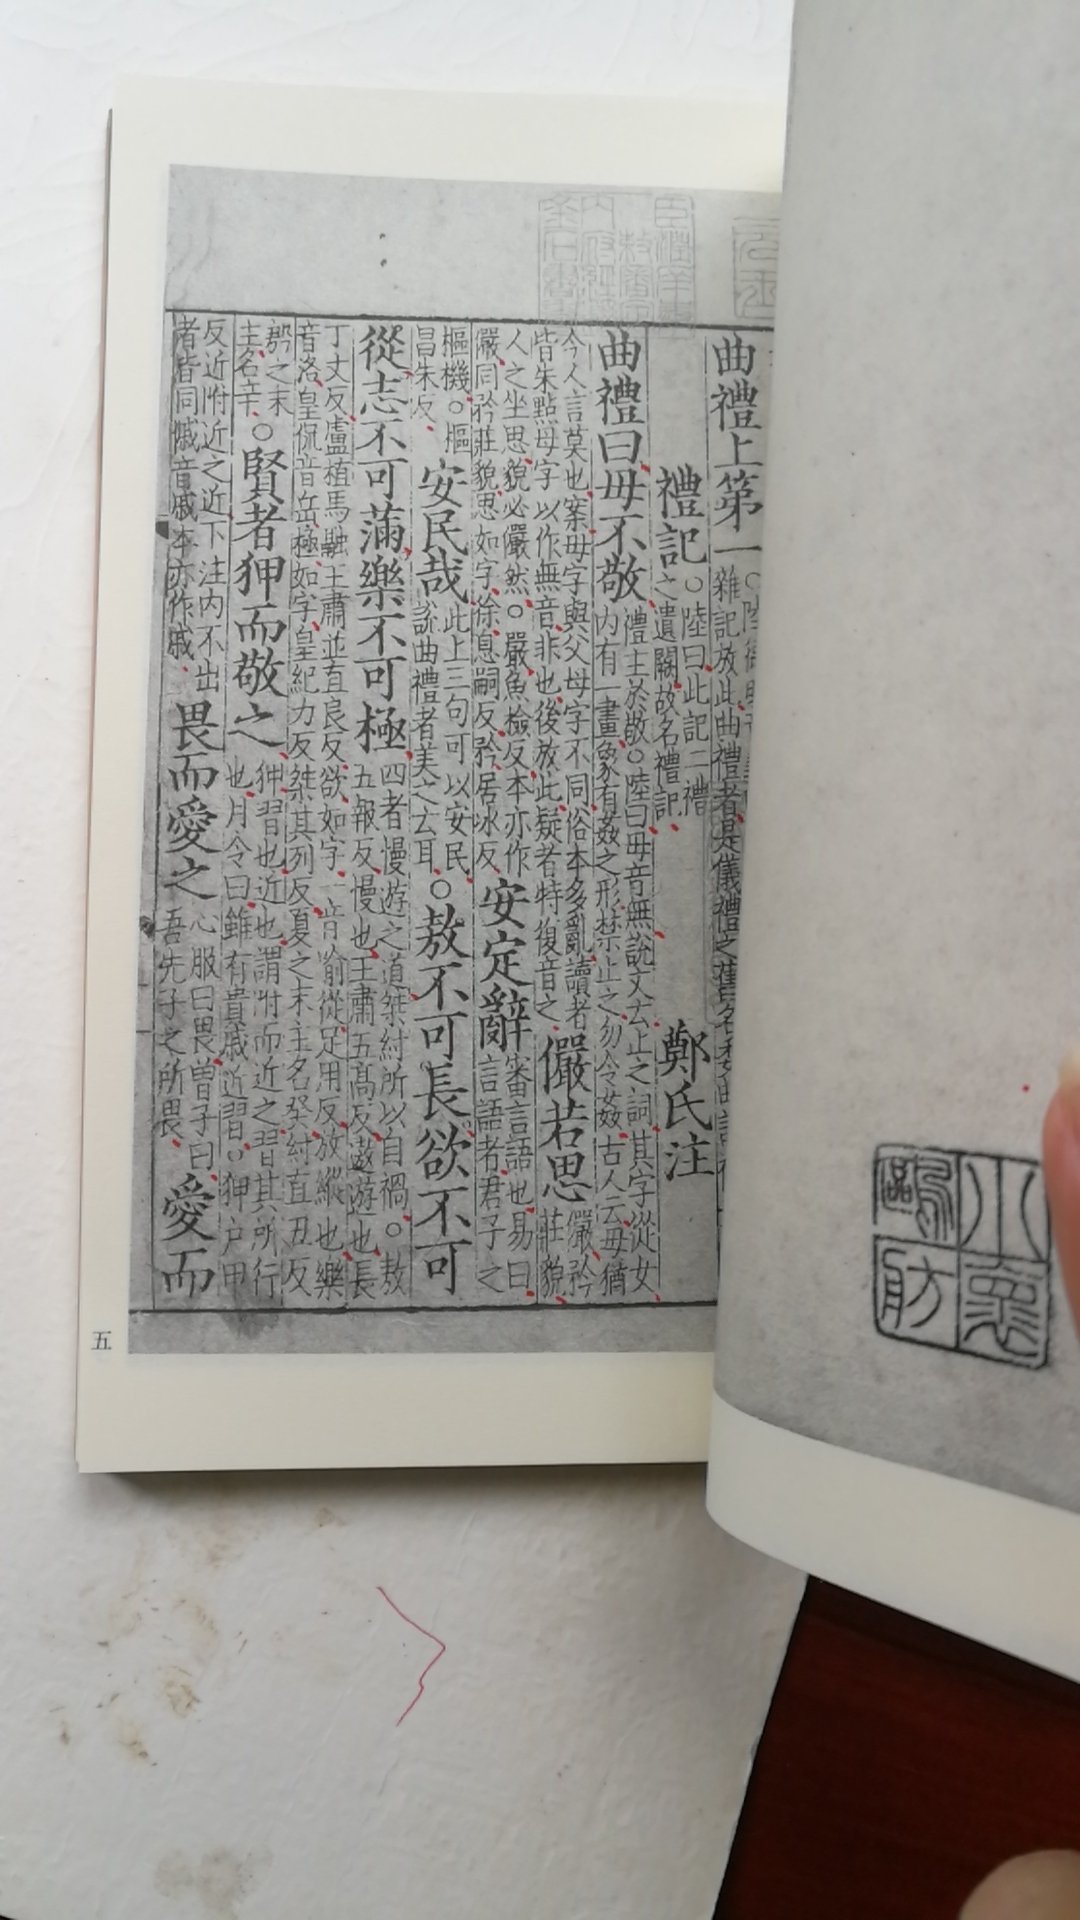 曲禮上第一
雜記放此曲禮者是儀禮之舊名
禮記
○陸曰此記二禮
之遺闕故名禮記
鄭氏注
曲禮曰毋不敬
禮主於敬○陸曰毋音無說文云止之詞其字從女
内有一畫象有姦之形禁止之勿令姦古人云毋猶
今人言莫也案毋字與父母字不同俗本多亂讀者
皆朱點母字以作無音非也後放此疑者特復音之
儼若思
儼矜
莊貌
人之坐思貌必儼然○嚴魚檢反本亦作
嚴同矜莊貌思如字徐息嗣反矜居冰反
安定辭
審言語也易曰
言語者君子之
樞機○樞
昌朱反
安民哉
此上三句可以安民
說曲禮者美之云耳
○敖不可長欲不可
從志不可滿樂不可極
四者慢遊之道桀紂所以自禍○敖
五報反慢也王肅五高反遨遊也長
丁丈反盧植馬融王肅並直良反欲如字一音喻從足用反放縱也樂
音洛皇侃音岳極如字皇紀力反桀其列反夏之末主名癸紂直丑反
殷之末
主名辛
○賢者狎而敬之
狎習也近也謂附而近之習其所行
也月令曰雖有貴戚近習○狎户甲
反近附近之近下注内不出
者皆同戚音戚本亦作戚
畏而愛之
心服曰畏曽子曰
吾先子之所畏
愛而
五